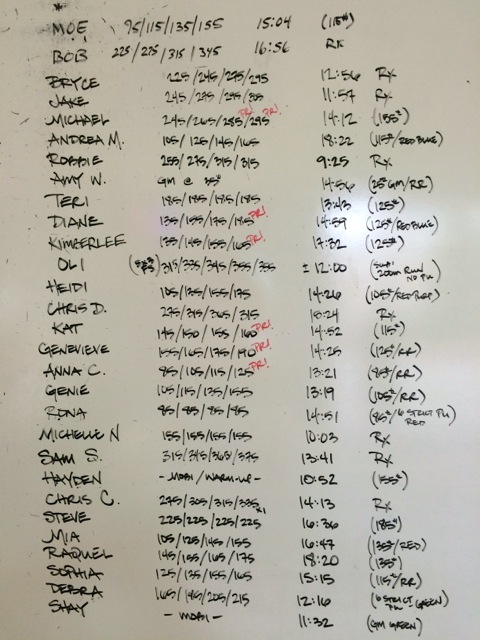 MOE 95/115/135/155 15:04 (115#)
BOB 225/275/315/345 16:56 RX
BRYCE 225/245/275/295 12:56 Rx
JAKE 245/275/295/305 11:57 Rx
MICHAEL 245/265/285 PR!/295 PR! 14:12 (155#)
ANDREA M. 105/125/145/165 18:22 (115#/RED BLUE)
ROBBIE 255/275/315/315 9:25 Rx
AMY W. GM @ 35# 14:56 (25# GM/RR)
TERI 185/185/185/185 13:43 (125#)
DIANE 135/155/175/185 PR! 14:59 (125#/RED BLUE)
KIMBERLEE 135/145/155/165 PR! 17:32 (125#)
OLI 315/335/345/355/355 ± 12:00 200m RUN NO PU
HEIDI 105/135/155/175 14:26
CHRIS D. 275/315/365/315 15:24 Rx
KAT 145/150/155/160 PR! 14:52 (115#)
GENEVIEVE 155/165/175/190 PR! 14:25 (125#/RR)
ANNA C. 85/105/115/125 PR! 13:21 (85#/RR)
GENIE 105/115/135/155 13:19 (105#/RR)
RONA 85/85/85/85 14:51 (85#/6 STRICT PU RED)
MICHELLE N 155/155/155/155 10:03 Rx
SAM S. 315/345/365/375 13:41 Rx
HAYDEN - MOBI/WARM-UP - 10:52 (155#)
CHRIS C. 275/305/315/335 x1 14:13 Rx
STEVE 225/225/225/225 16:36 (185#)
MIA 105/125/145/155 16:47 (135#/RED)
RAQUEL 145/155/165/175 18:20 (135#)
SOPHIA 125/135/155/165 15:15 (115#/RR)
DEBRA 165/185/205/215 12:16 (6 STRICT PU - GREEN)
SHAY - MOBI - 11:32 (GM GREEN)